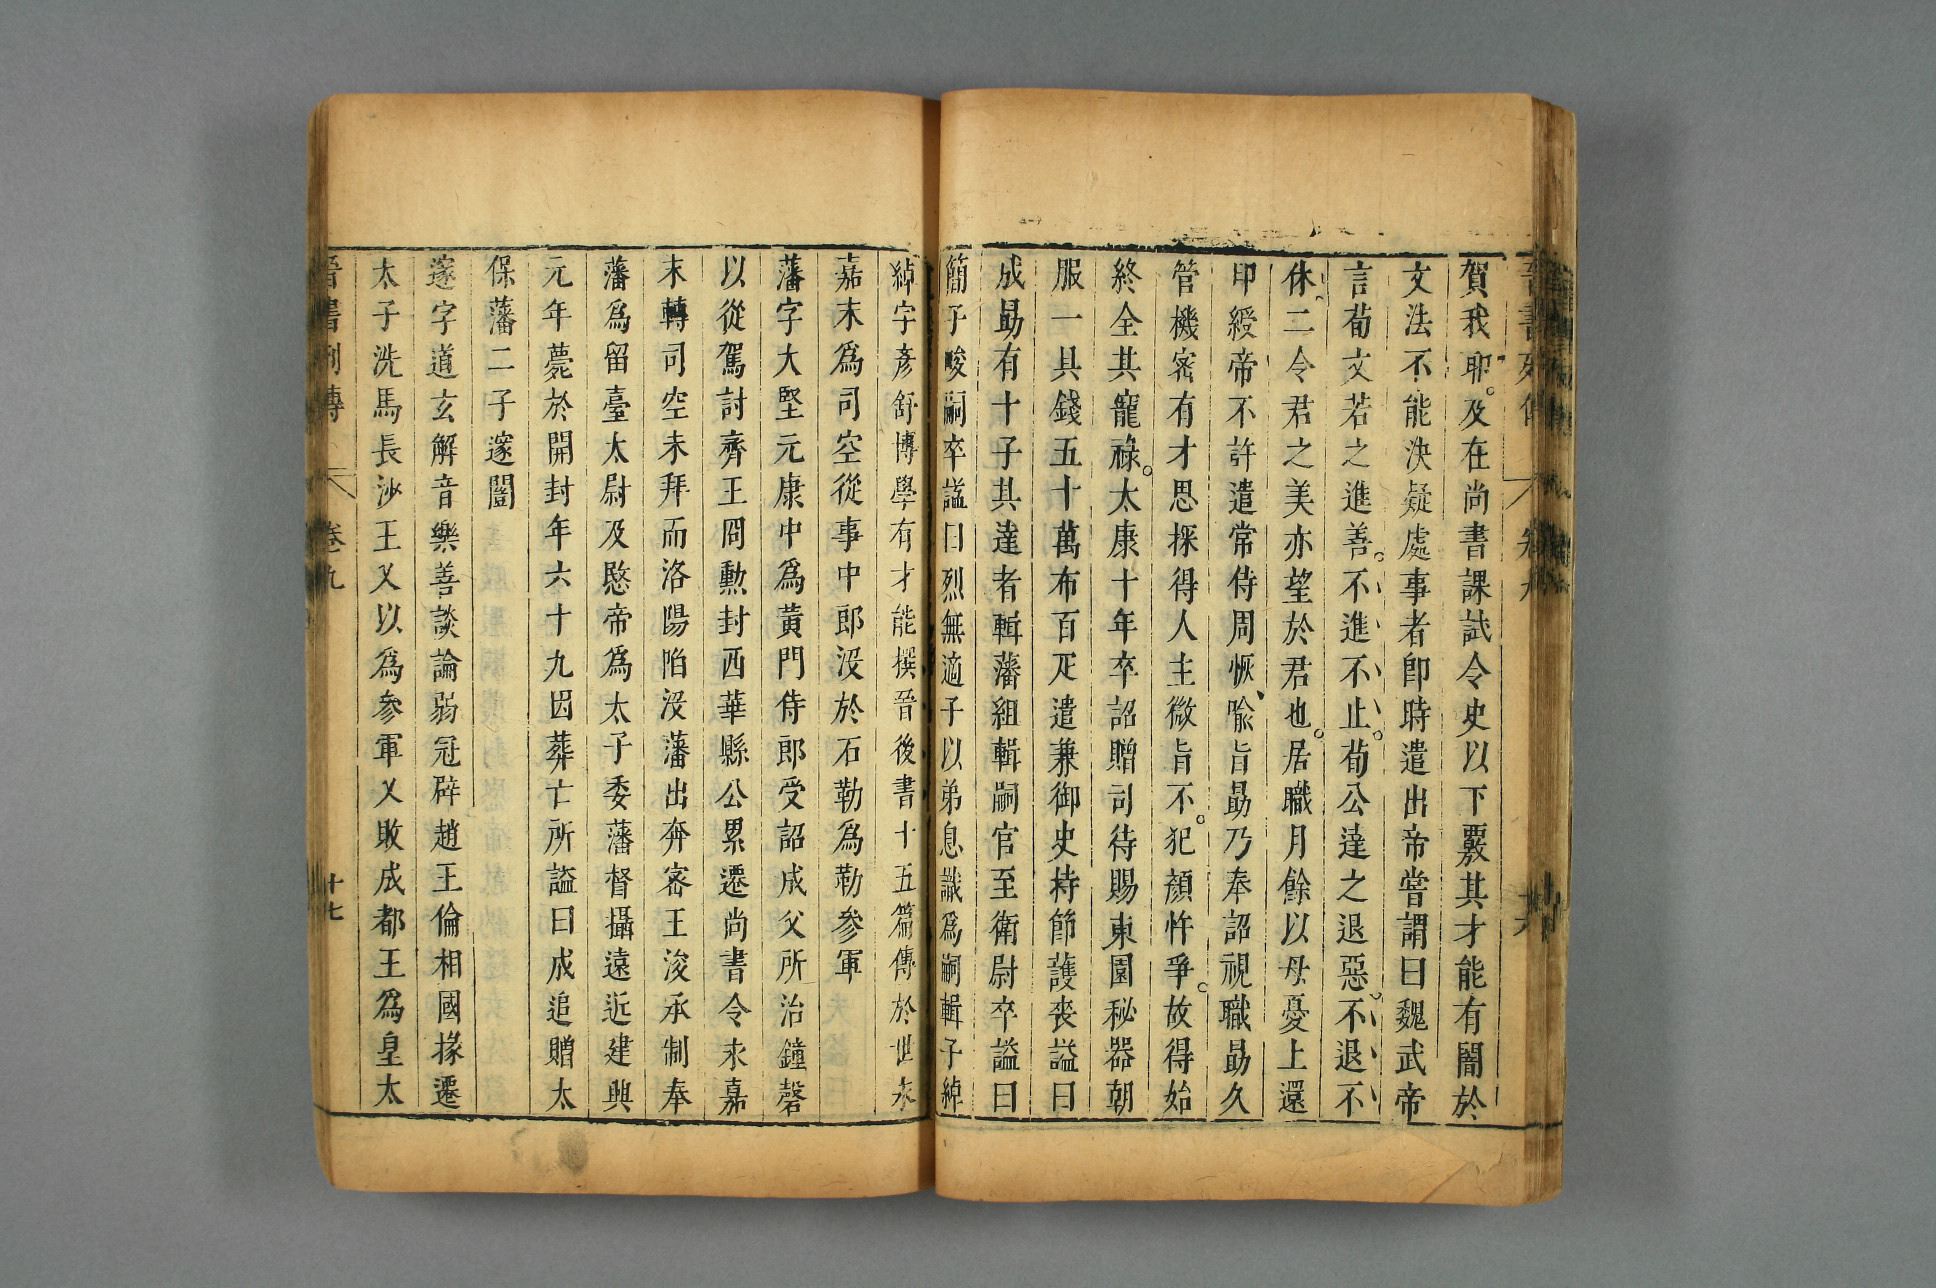 賀我耶。及在尚書課試令史以下覈其才能有闇於
文法不能決疑處事者卽時遣出帝嘗謂曰魏武帝
言荀文若之進善。不進不止。荀公達之退惡。不退不
休、二令君之美亦望於君也。居職月餘以母憂上還
印綬帝不許遣常侍周恢、喩旨勗乃奉詔視職勗久
管機密有才思探得人主微旨不。犯顏忤爭。故得始
終全其寵祿。太康十年卒詔贈司待賜東園秘器朝
服一具錢五十萬布百疋遣兼御史持節護喪謚曰
成勗有十子其達者輯藩組輯嗣官至衛尉卒謚曰
簡子畯嗣卒謚曰烈無適子以弟息識爲嗣輯子綽
綽字彥舒博學有才能撰晉後書十五篇傳於世永
嘉末爲司空從事中郎沒於石勒爲勒參軍
藩字大堅元康中爲黃門侍郎受詔成父所治鐘磬
以從駕討齊王冏勳封西華縣公累遷尚書令永嘉
末轉司空未拜而洛陽陷沒藩出奔密王浚承制奉
藩爲留臺太尉及愍帝爲太子委藩督攝遠近建興
元年薨於開封年六十九因葬亡所謚曰成追贈太
保藩二子邃闓
邃字道玄解音樂善談論弱冠辟趙王倫相國掾遷
太子洗馬長沙王乂以爲參軍乂敗成都王爲皇太
晉書列傳 卷九 十七